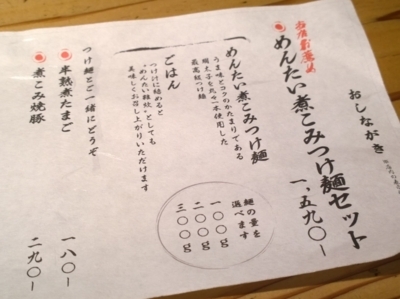 おしながき
当店お薦め
めんたい煮こみつけ麺セット
一、五九〇-
めんたい煮こみつけ麺
うま味とコクのかたまりである
明太子を丸々一本使用した
最高級つけ麺
麺の量を
選べます
一〇〇g
二〇〇g
三〇〇g
ごはん
つけ汁に絡めると
"めんたい雑炊"としても
美味しくお召し上がりいただけます
つけ麺とご一緒にどうぞ
半熟煮たまご
一八〇-
煮こみ焼豚
二九〇-